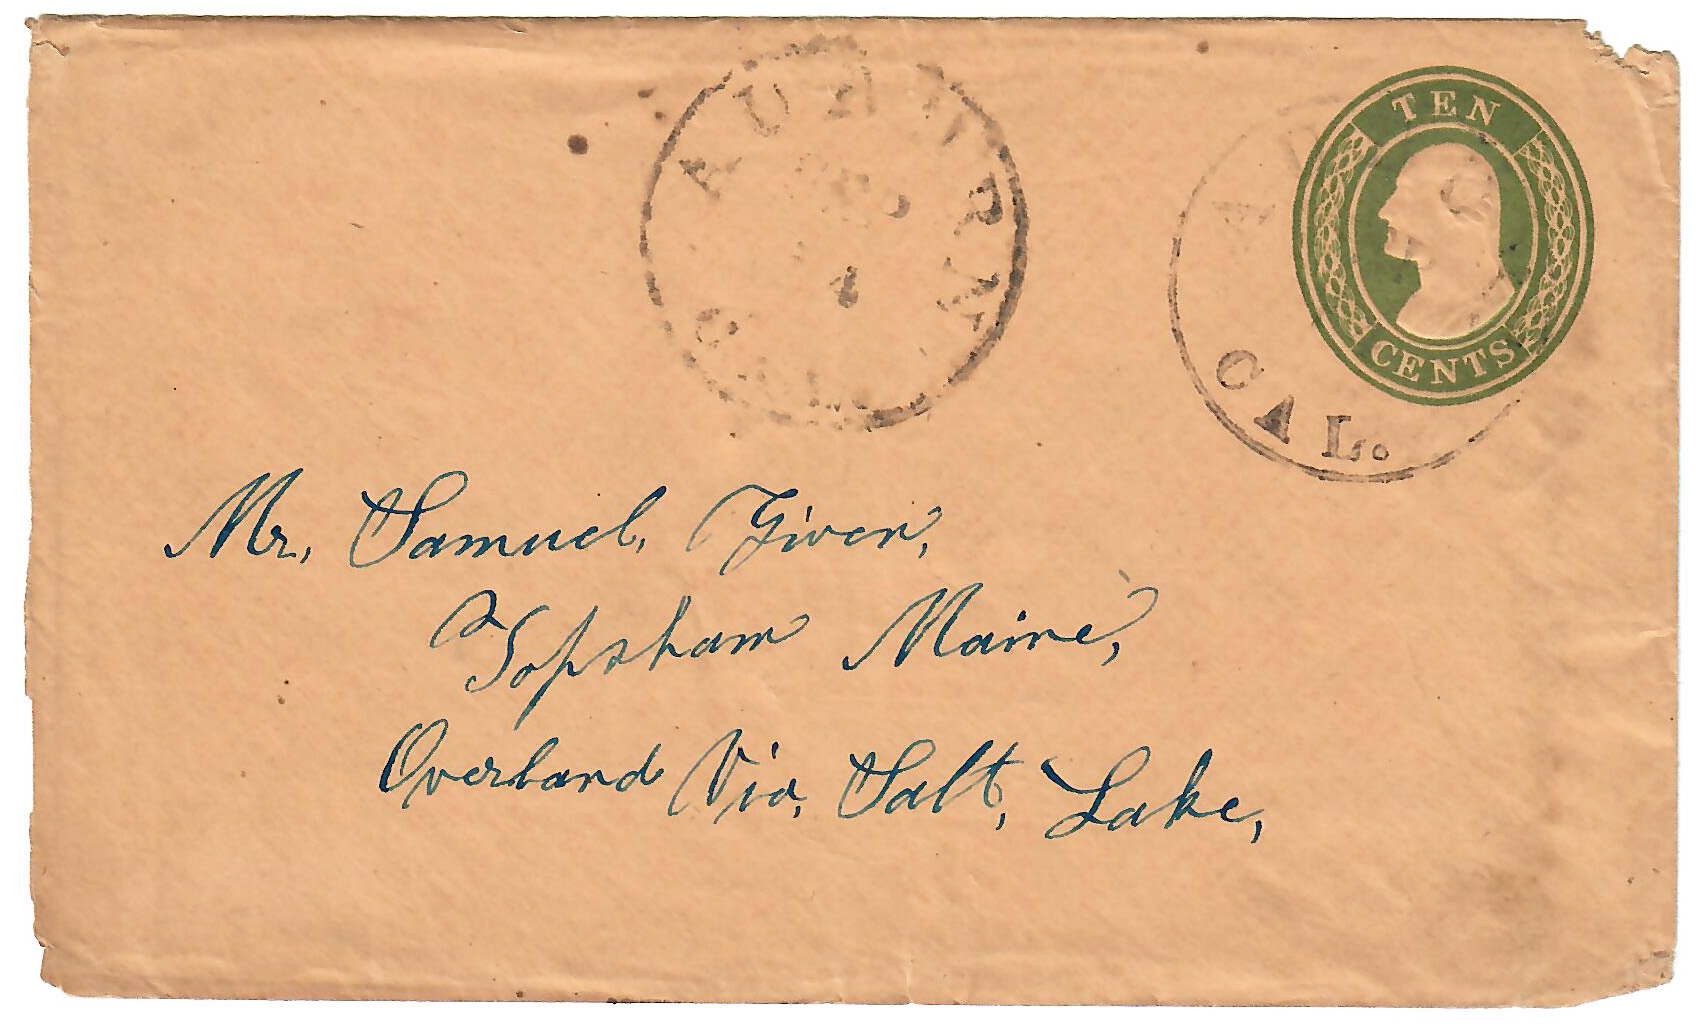 AUBURN
4
CAL.
TEN
CENTS
CAL.
Mr, Samuel, Given,
Topsham Maine,
Overland Via, Salt, Lake,